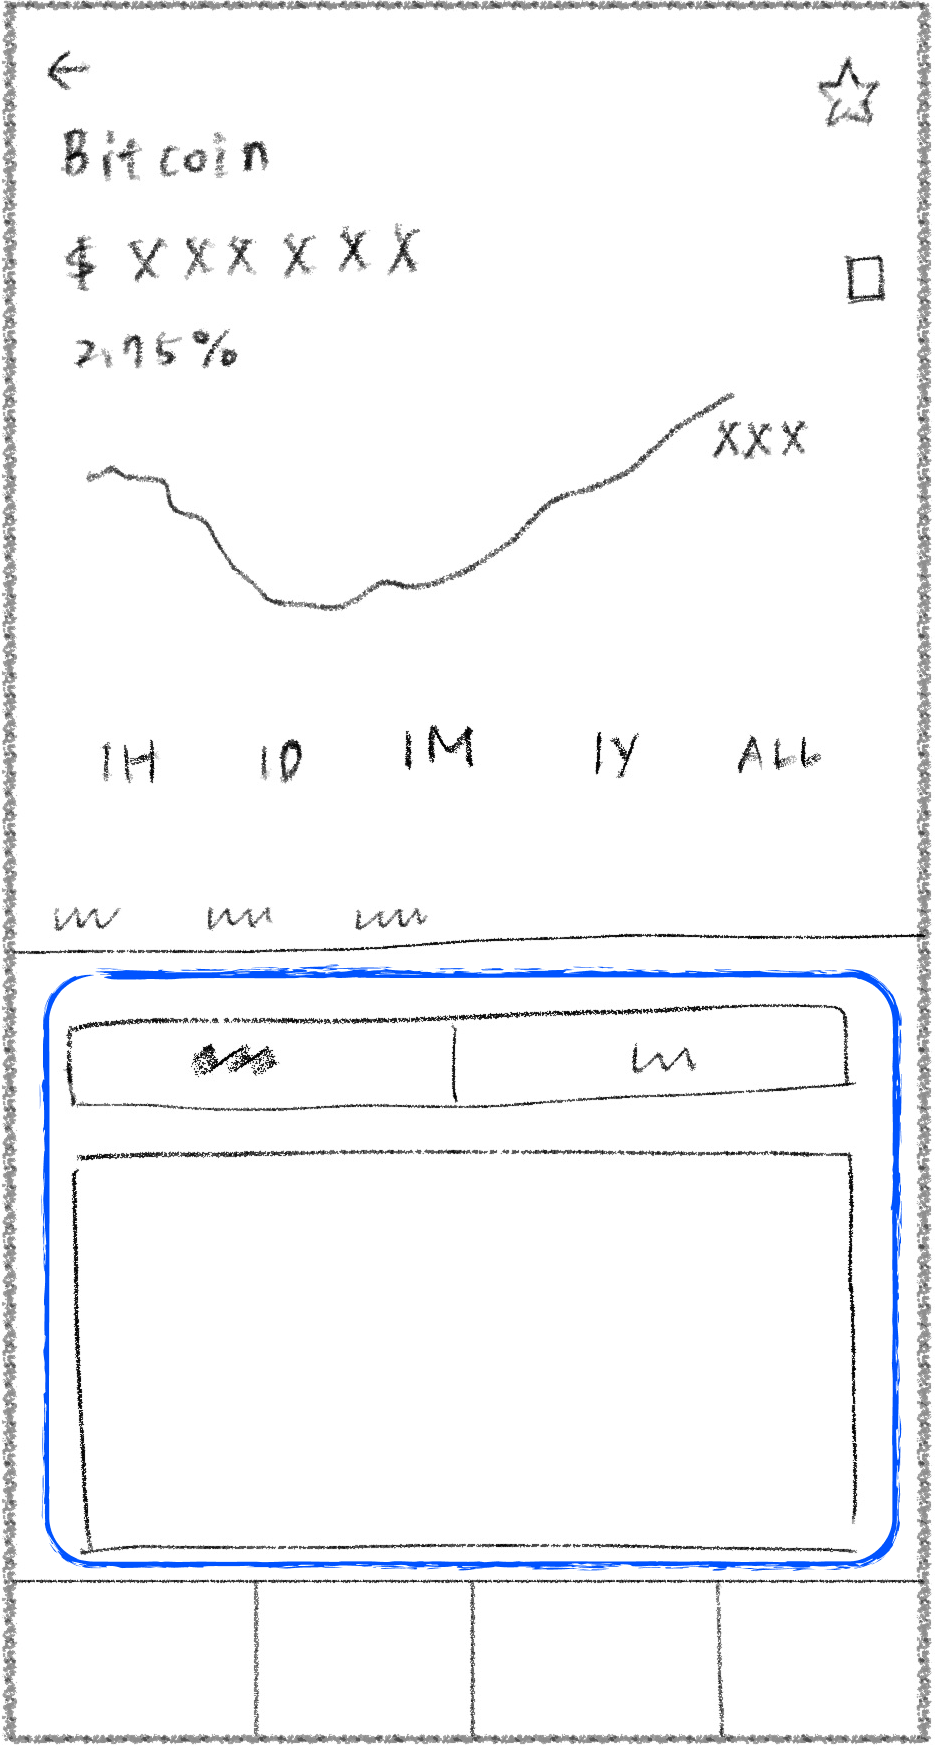 Bitcoin
$ XXXXXX
2.75%
XXX
1H 1D 1M 1Y ALL